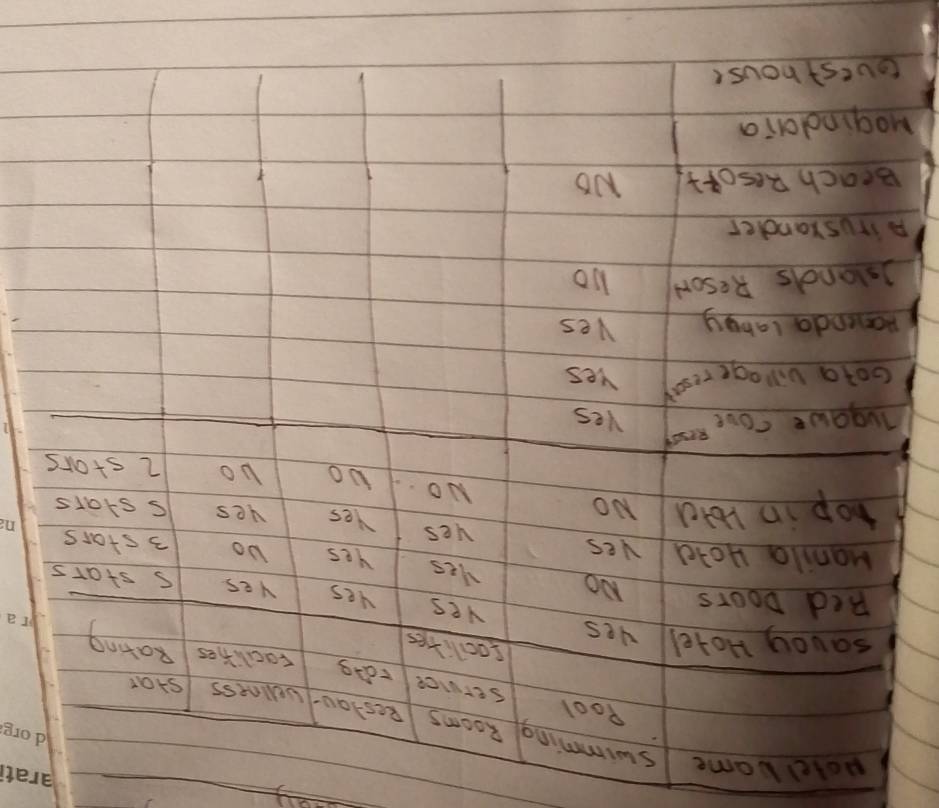 Hotel Name Swimming Rooms Restau- Wellness Star
Pool service facilities Rating
facilities
Savoy Hotel yes yes yes yes 5 stars
Red Doors No yes yes No 3 stars
Manila Hotel yes yes yes yes 5 stars
hop in Hotel No No No No 2 stars
Tugawe Cove Resort Yes
Gota village resort Yes
Yes
Islands Resort No
Beach Resort No
Guesthouse